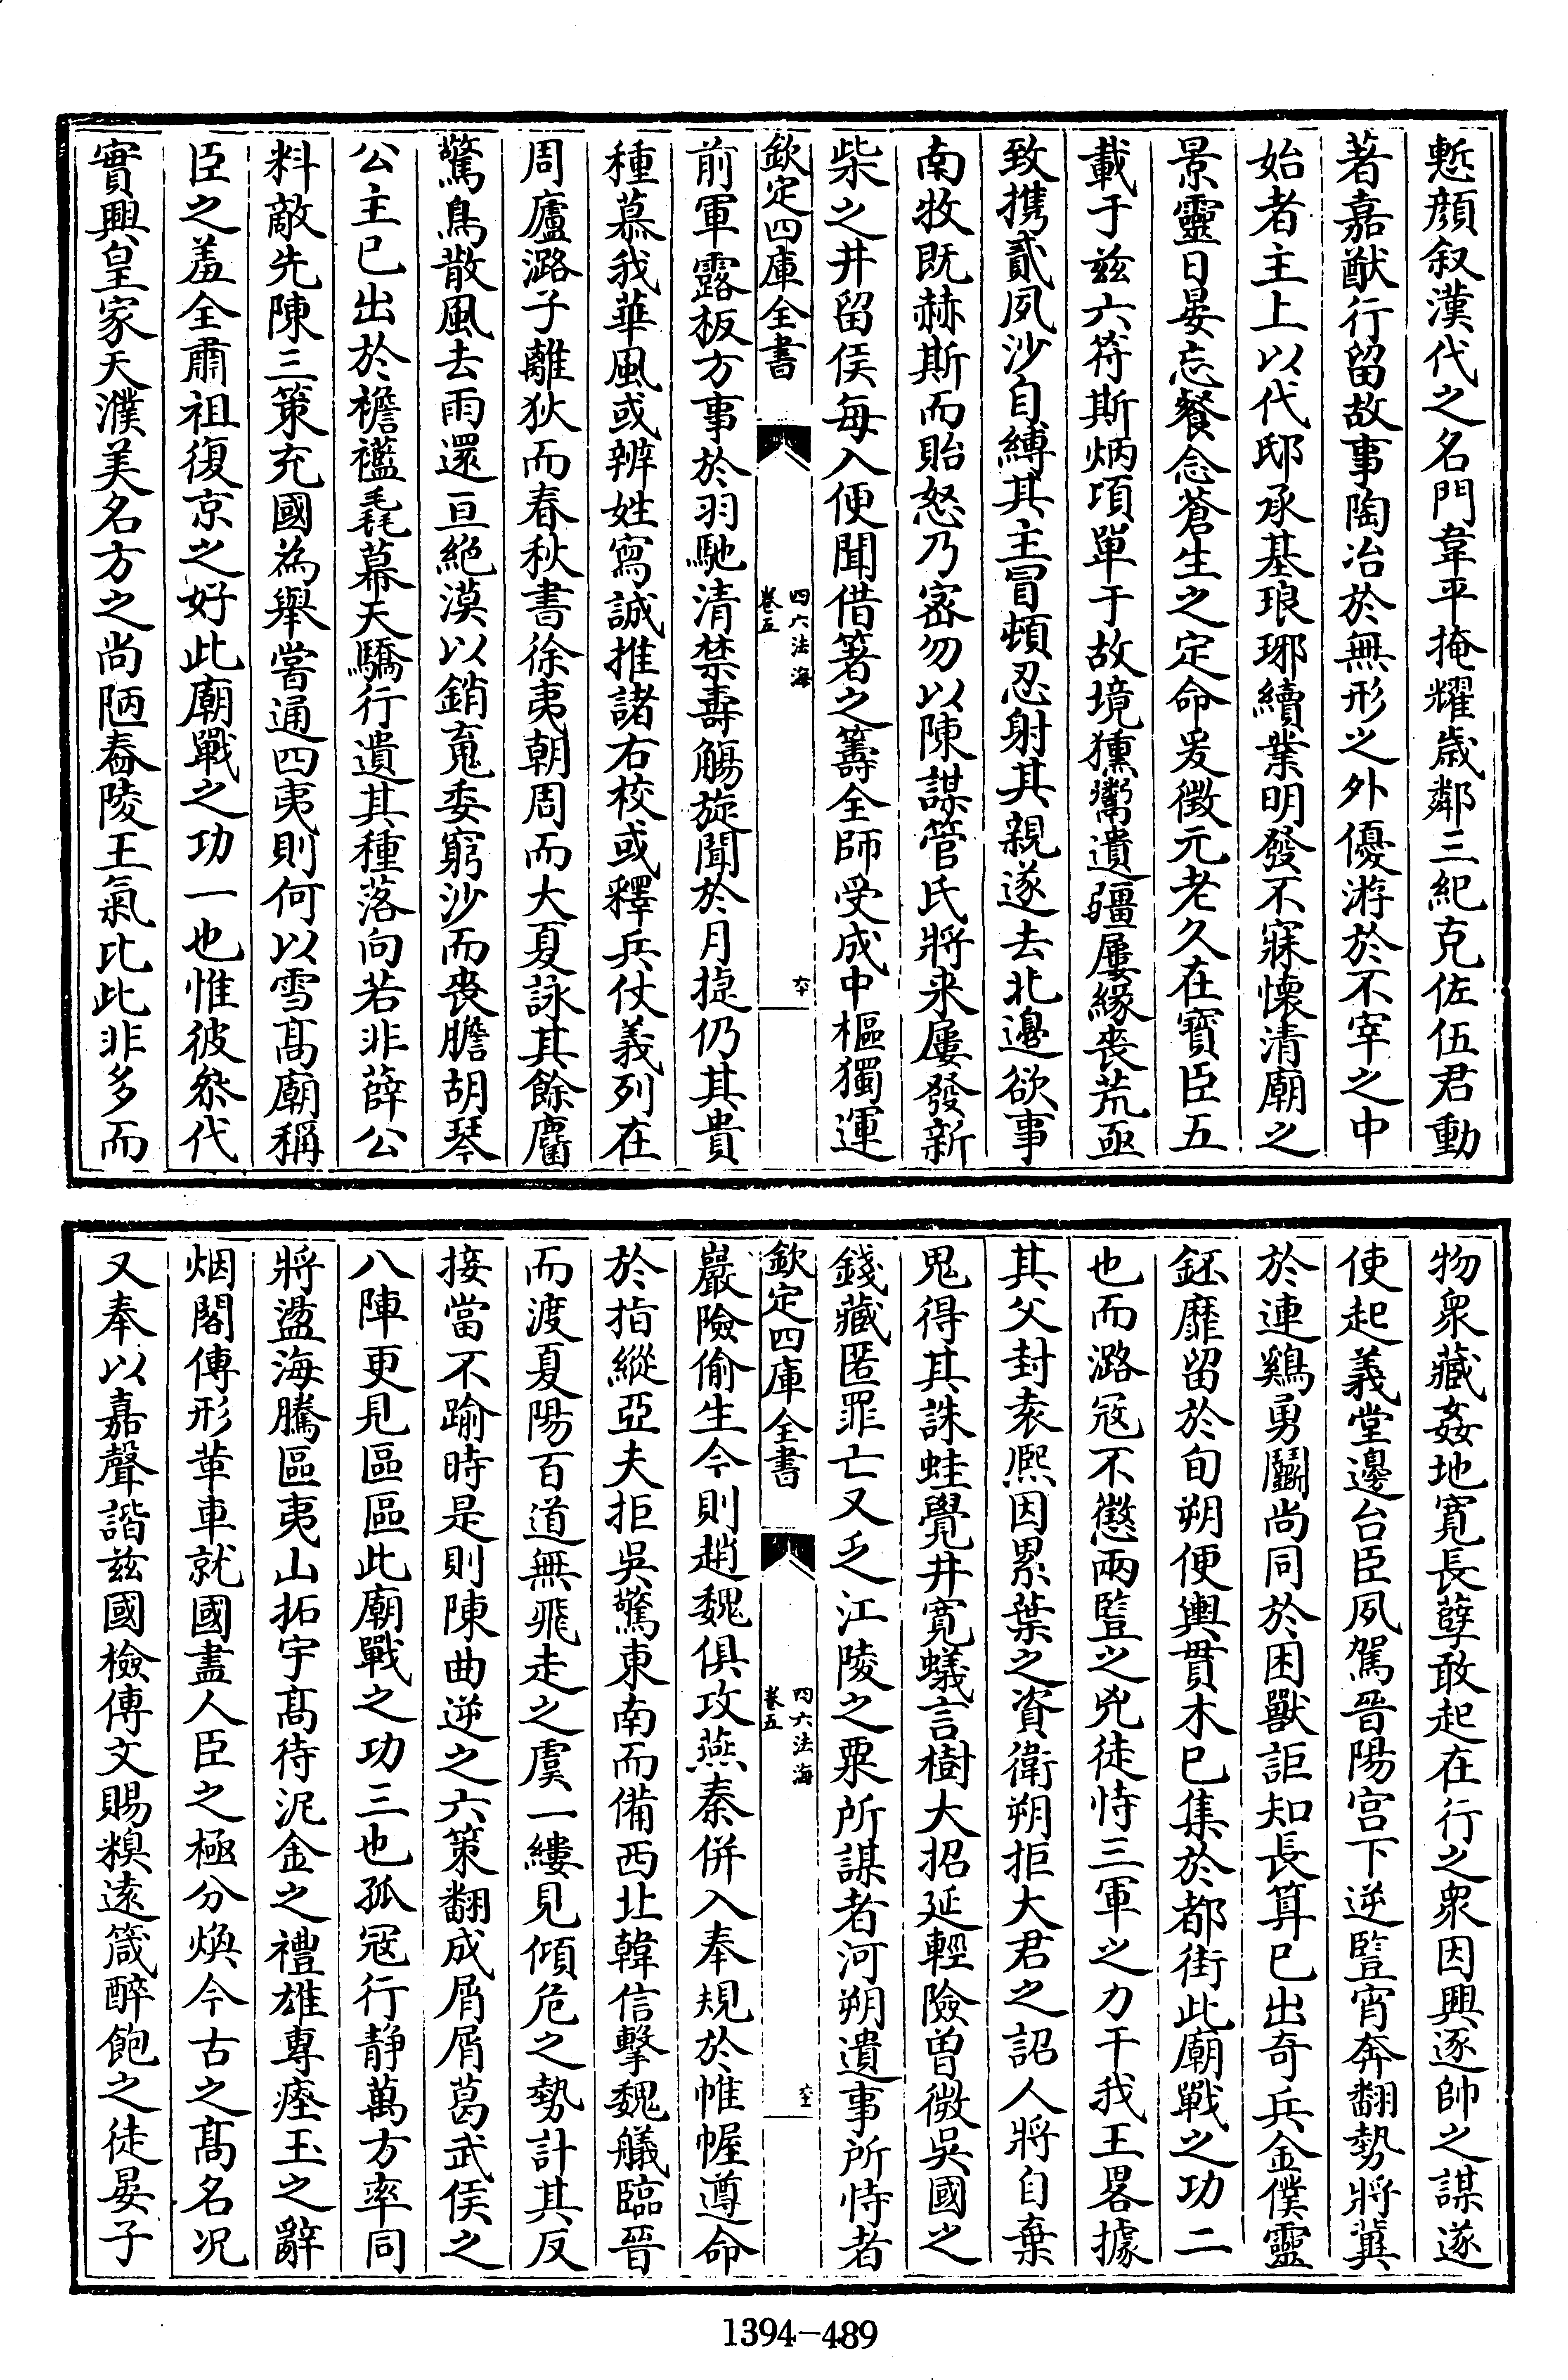 慙顔叙漢代之名門韋平掩耀歲鄰三紀克佐伍君動
著嘉猷行留故事陶冶於無形之外優游於不宰之中
始者主上以代邸承基琅琊續業明發不寐懷清廟之
景靈日晏忘餐念蒼生之定命爰徵元老久在寶臣五
載于兹六符斯炳項單于故境獯鬻遺疆屢緣喪荒亟
致携貳夙沙自縛其主冒頓忍射其親遂去北邊欲事
南牧既赫斯而貽怒乃密勿以陳謀管氏將来屢發新
柴之井留侯每入便聞借箸之籌全師受成中樞獨運
欽定四庫全書
四六法海
卷五
六十
前軍露板方事於羽馳清禁壽觴旋聞於月捷仍其貴
種慕我華風或辨姓寫誠推諸右校或釋兵仗義列在
周廬潞子離狄而春秋書徐夷朝周而大夏詠其餘麕
驚鳥散風去雨還亘絶漠以銷䰟委窮沙而喪膽胡琴
公主已出於襜襤毳幕天驕行遺其種落向若非薛公
料敵先陳三策充國為舉嘗通四夷則何以雪髙廟稱
臣之羞全肅祖復京之好此廟戰之功一也惟彼叅代
實興皇家天濮美名方之尚陋舂陵王氣比此非多而
物衆藏姦地寛長孽敢起在行之衆因興逐帥之謀遂
使起義堂邊台臣夙駕晉陽宫下逆豎宵奔翻勢將冀
於連鷄勇鬬尚同於困獸詎知長算已出奇兵金僕靈
鉟靡留於旬朔便輿貫木已集於都街此廟戰之功二
也而潞寇不懲兩豎之兇徒恃三軍之力干我王畧據
其父封袁熈因累葉之資衛朔拒大君之詔人將自棄
鬼得其誅蛙覺井寛蟻言樹大招延輕險曽微吳國之
錢藏匿罪亡又乏江陵之粟所謀者河朔遺事所恃者
欽定四庫全書
四六法海
卷五
六十一
巖險偷生今則趙魏俱攻燕秦併入奉規於帷幄遵命
於指縱亞夫拒吳驚東南而備西北韓信擊魏艤臨晉
而渡夏陽百道無飛走之虞一縷見傾危之勢計其反
接當不踰時是則陳曲逆之六策翻成屑屑葛武侯之
八陣更見區區此廟戰之功三也孤寇行静萬方率同
將盪海騰區夷山拓宇髙待泥金之禮雄專瘞玉之辭
烟閣傳形革車就國盡人臣之極分煥今古之髙名况
又奉以嘉聲諧兹國檢傅文賜糗逺箴醉飽之徒晏子
1394-489